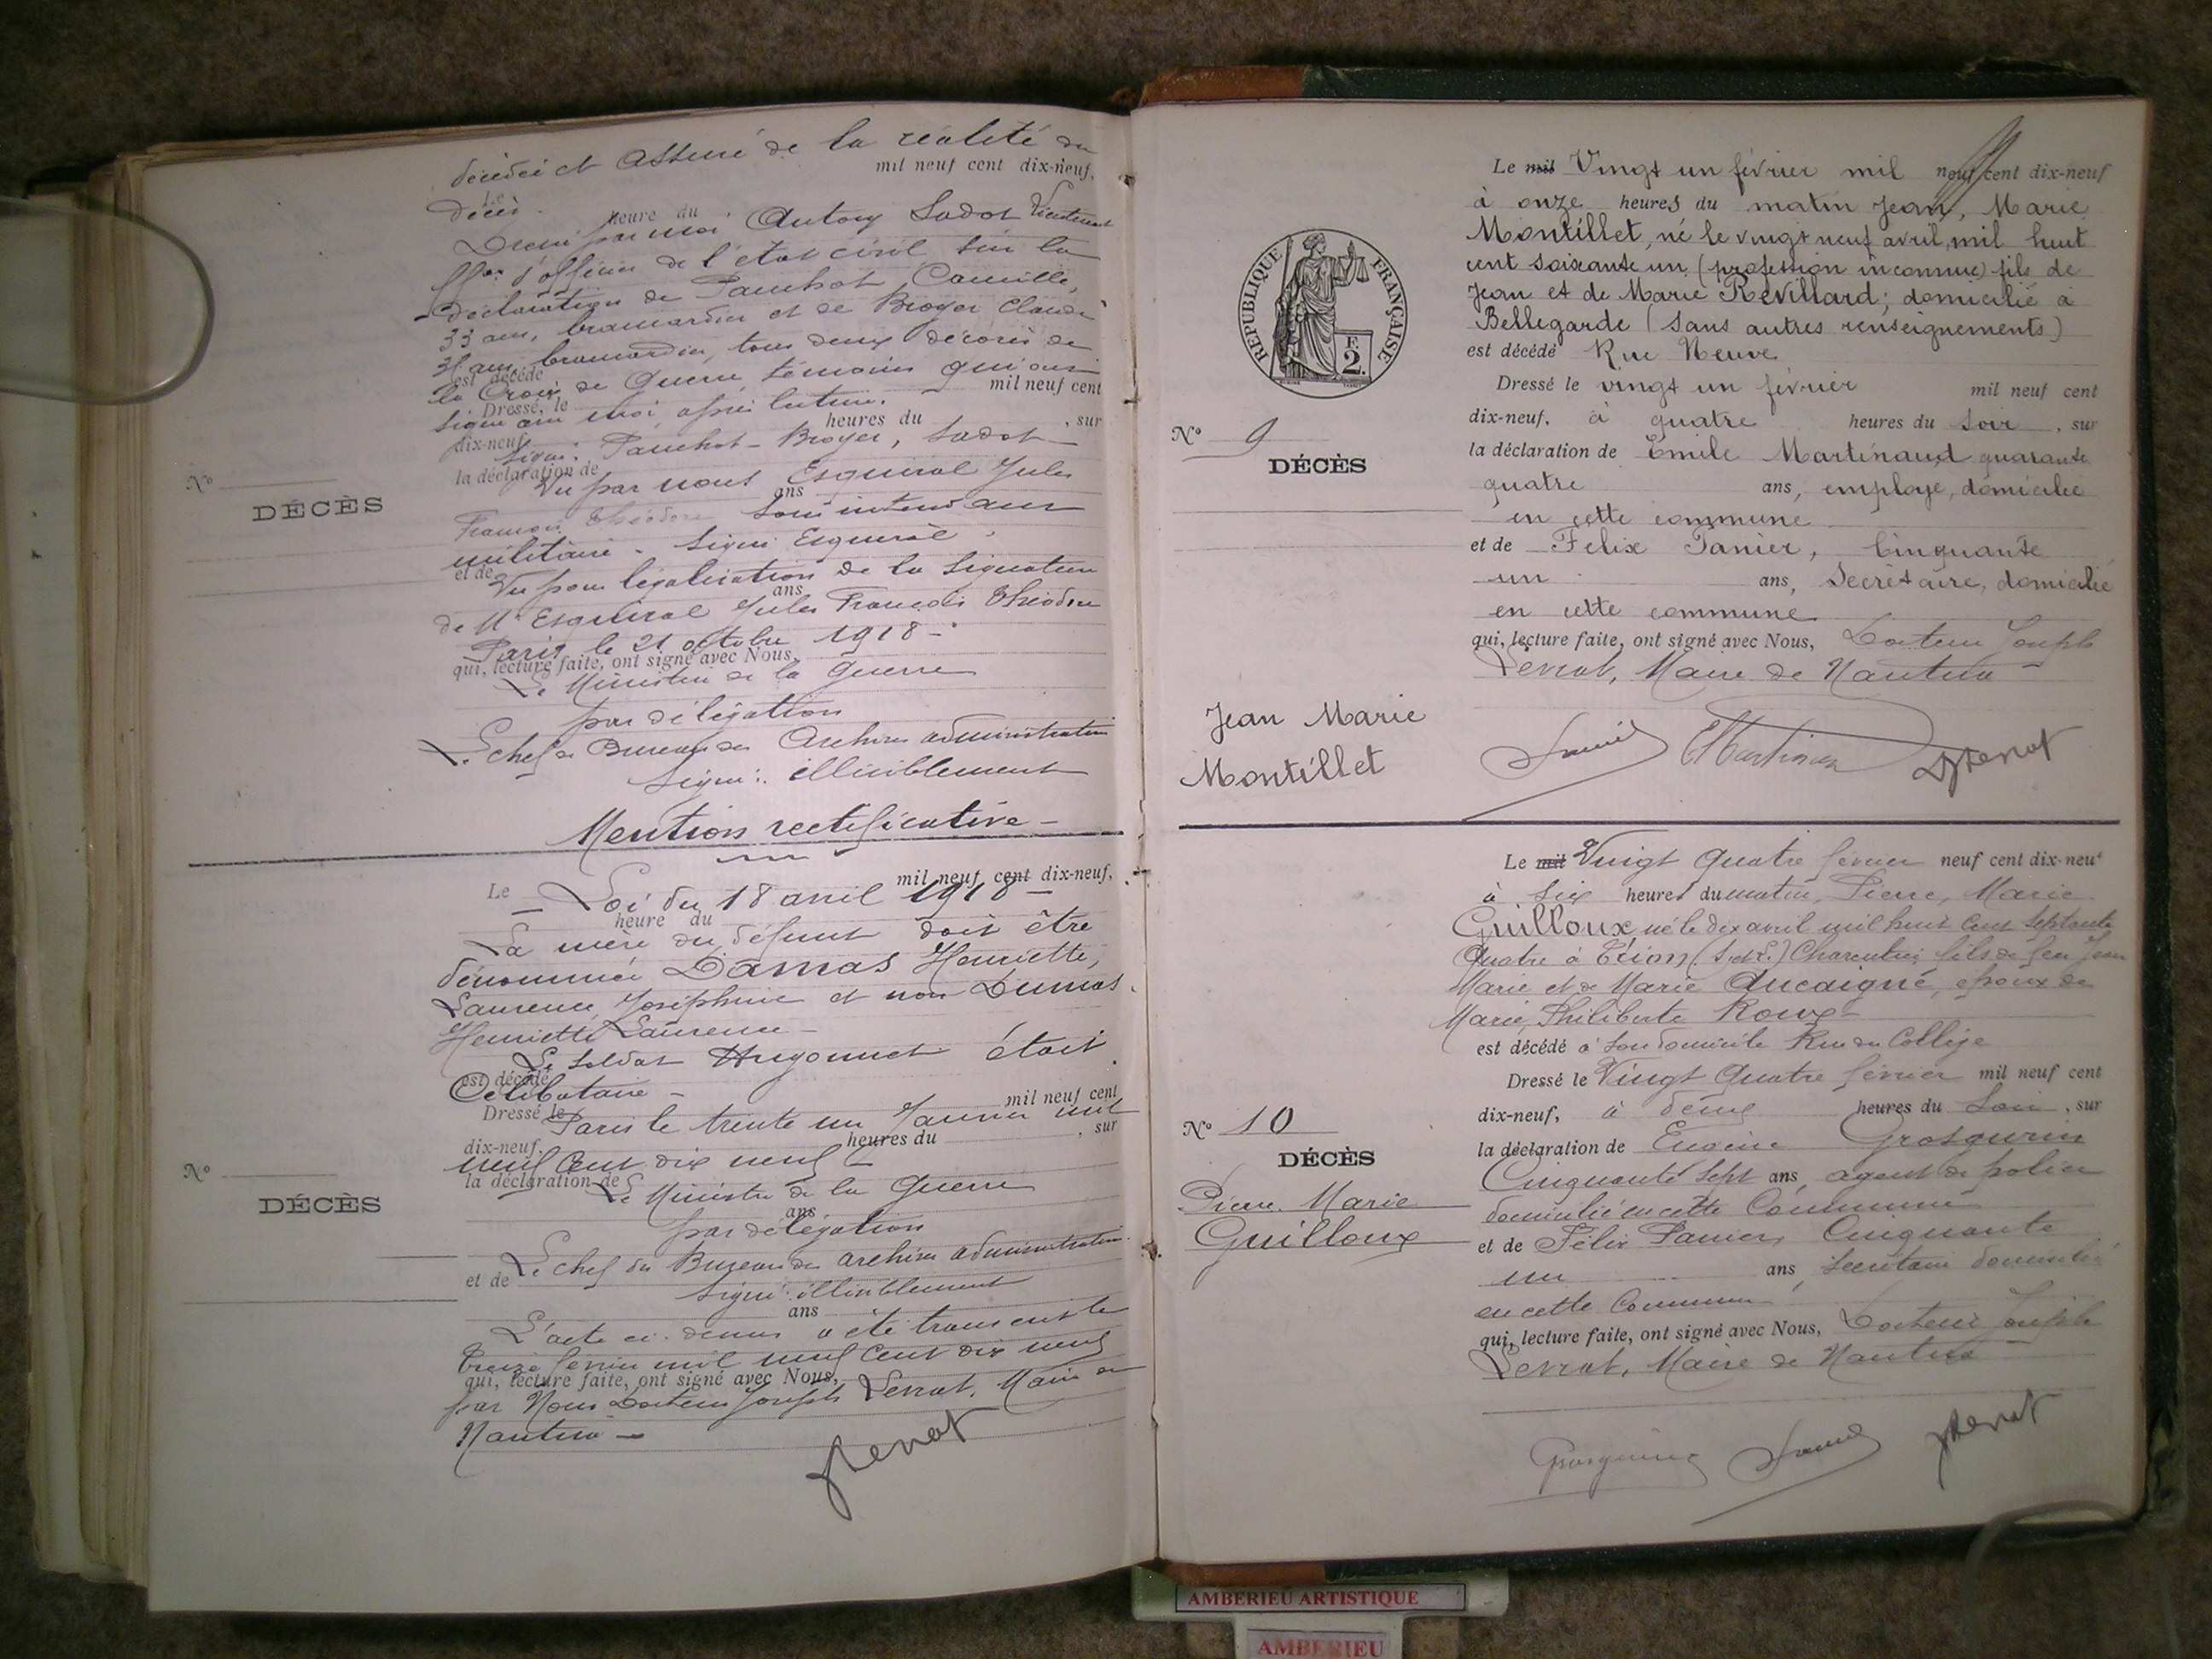 décédé et Assuré de la réalité du
mil neuf cent dix-neuf,
Le
décès.
heure du
Dressé par moi, Antony Sadot Lieutenant
ffon d'officier de l'état civil sur la
déclaration de Panchot, Camille,
33 ans, brancardier et de Broyer Claude
38 ans, brancardier, tous deux décorés de
est décédé
la Croix de Guerre, témoins qui ont
mil neuf cent
Dressé, le
signé avec moi, après lecture.
heures du , sur
dix-neuf,
Signé: Panchot - Broyer, Sadot
la déclaration de
Vu par nous Esquirol Jules
ans
Nº
DÉCÈS
François Théodore Sous intendant
militaire. Signé Esquirol.
et de
Vu pour légalisation de la signature
ans
de Mr Esquirol Jules François Théodore
Paris le 21 octobre 1918 -
qui, lecture faite, ont signé avec Nous,
Le Ministre de la Guerre
par délégation
Le chef du Bureau des Archives administratives
Signé: illisiblement
Mention rectificative -
mil neuf cent dix-neuf,
Le
Loi du 18 avril 1918 -
heure du
La mère du défunt doit être
dénommée Damas Henriette,
Laurence, Joséphine et non Dumas
Henriette Laurence -
Le soldat Hugonnet était
est décédé
Célibataire -
mil neuf cent
Dressé le
Paris le trente un Janvier mil
dix-neuf, heures du , sur
neuf Cent dix neuf -
la déclaration de
Le Ministre de la Guerre
Nº
DÉCÈS
ans
par délégation
Le chef du Bureau des archives administratives
et de
signé: illisiblement
ans
L'acte ci-dessus a été transcrit le
treize février mil neuf Cent dix neuf
qui, lecture faite, ont signé avec Nous,
par Nous Docteur Joseph Levrat, Maire de
Nantua -
JLevrat
REPUBLIQUE FRANÇAISE
F
2.
Le mil Vingt un février mil neuf cent dix-neuf
à onze heures du matin Jean, Marie
Montillet, né le vingt neuf avril, mil huit
cent soixante un (profession inconnue) fils de
Jean et de Marie Revillard; domicilié à
Bellegarde (sans autres renseignements)
est décédé Rue Neuve
Dressé le vingt un février mil neuf cent
dix-neuf, à quatre heures du soir, sur
Nº 9
DÉCÈS
la déclaration de Emile Martinaud quarante
quatre ans, employé, domicilié
en cette commune
et de Felix Panier, Cinquante
un ans, Secrétaire, domicilié
en cette commune
qui, lecture faite, ont signé avec Nous, Docteur Joseph
Levrat, Maire de Nantua -
Jean Marie
Montillet
JLevrat
Le mil Vingt Quatre février neuf cent dix-neuf
à six heures du matin, Pierre, Marie
Guilloux né le dix avril mil huit cent septante
Quatre à (S.et L.) Charentier fils de feu Jean
Marie et de Marie Aucaigne, époux de
Marie, Philiberte Roux
est décédé à son domicile Rue du Collège
Dressé le Vingt Quatre février mil neuf cent
dix-neuf, à deux heures du Soir, sur
Nº 10
DÉCÈS
Pierre Marie
Guilloux
la déclaration de Eugène Grosgurin
Cinquante Sept ans, agent de police
domicilié en cette Commune
et de Félix Panier, Cinquante
un ans, secrétaire domicilié
en cette Commune
qui, lecture faite, ont signé avec Nous, Docteur Joseph
Levrat, Maire de Nantua -
Grosgurin
JLevrat
AMBERIEU ARTISTIQUE
AMBERIEU